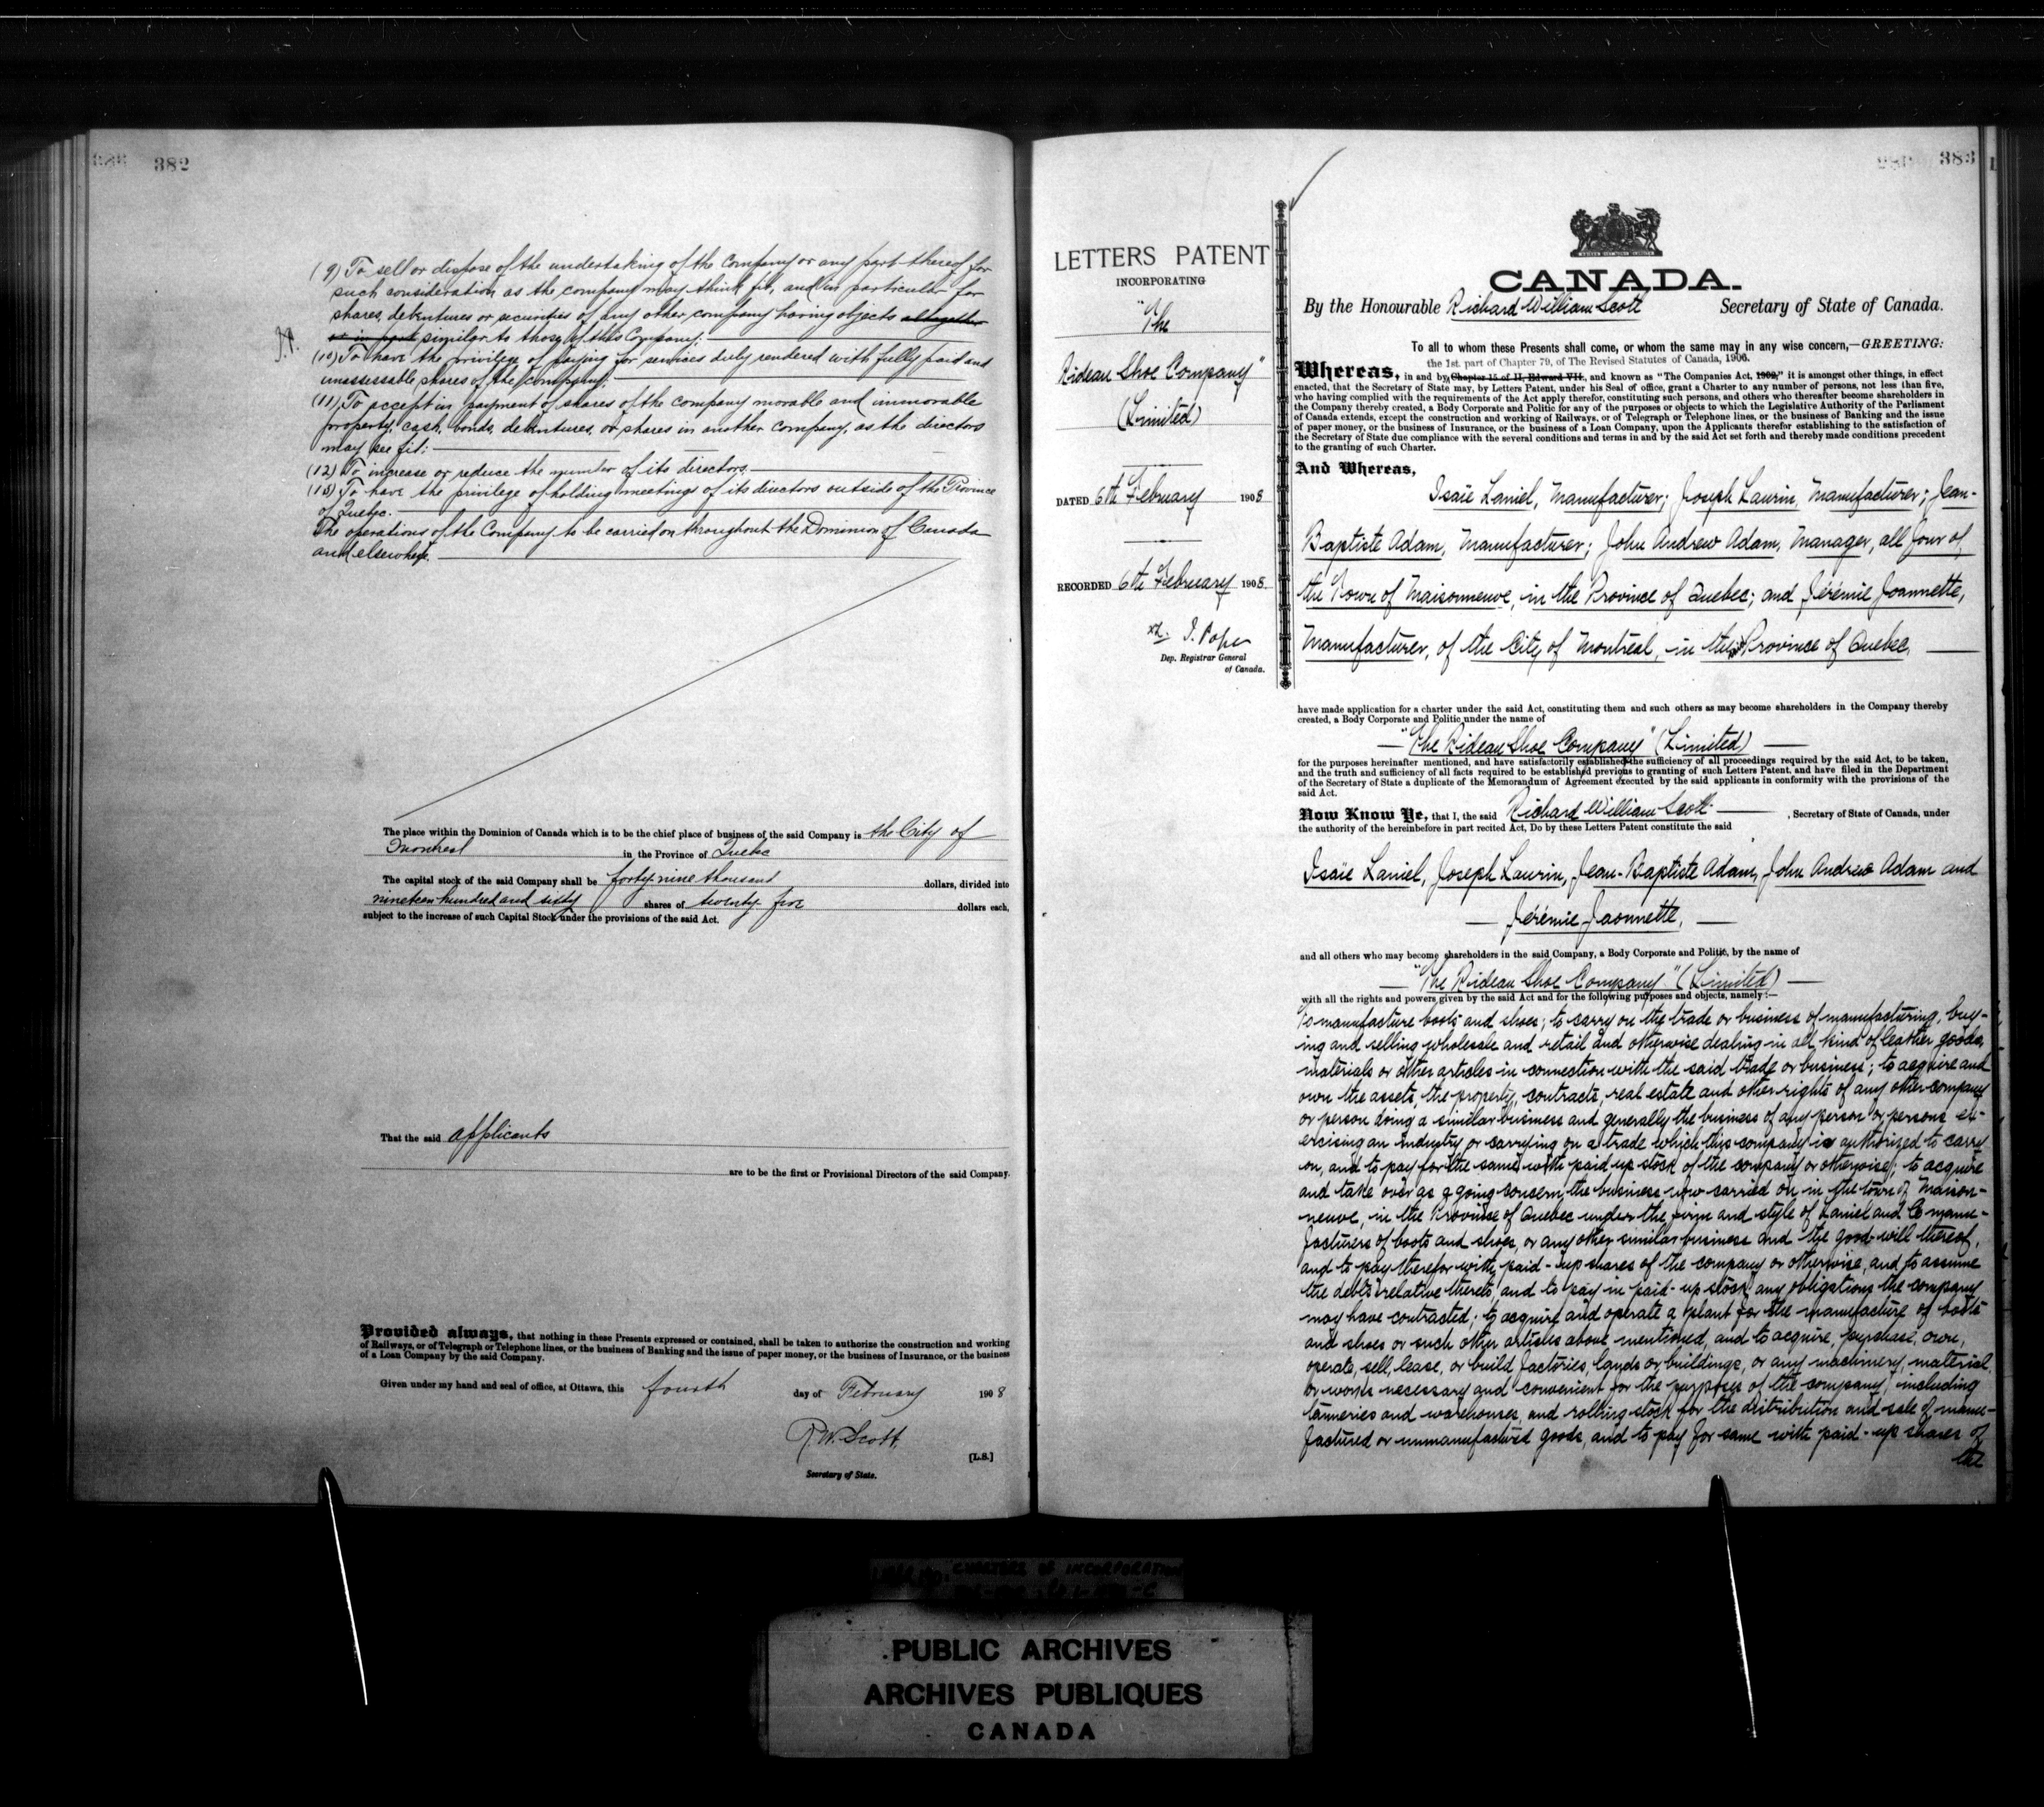 382
(9) To sell or dispose of the undertaking of the Company or any part thereof for
such consideration as the company may think fit, and in particular for
shares, debentures or securities of any other company having objects altogether
or in part similar to those of this Company;
(10) To have the privilege of paying for services duly rendered with fully paid and
unassessable shares of the company;
(11) To accept in payment of shares of the company movable and immovable
property, cash, bonds, debentures, or shares in another company, as the directors
may see fit;
(12) To increase or reduce the number of its directors.
(13) To have the privilege of holding meetings of its directors outside of the Province
of Quebec.
The operations of the Company to be carried on throughout the Dominion of Canada
and elsewhere.
The place within the Dominion of Canada which is to be the chief place of business of the said Company is the City of
Montreal in the Province of Quebec
The capital stock of the said Company shall be forty-nine thousand dollars, divided into
nineteen hundred and sixty shares of twenty five dollars each,
subject to the increase of such Capital Stock under the provisions of the said Act.
That the said applicants
are to be the first or Provisional Directors of the said Company.
Provided always, that nothing in these Presents expressed or contained, shall be taken to authorize the construction and working
of Railways, or of Telegraph or Telephone lines, or the business of Banking and the issue of paper money, or the business of Insurance, or the business
of a Loan Company by the said Company.
Given under my hand and seal of office, at Ottawa, this fourth day of February 1908
R.W. Scott,
[L.S.]
Secretary of State.
383
LETTERS PATENT
INCORPORATING
"The
Rideau Shoe Company"
(Limited)
DATED 6th February 1908
RECORDED 6th February 1908
J. Pope
Dep. Registrar General
of Canada.
CANADA.
By the Honourable Richard William Scott Secretary of State of Canada.
To all to whom these Presents shall come, or whom the same may in any wise concern,—GREETING:
the 1st. part of Chapter 79, of The Revised Statutes of Canada, 1906.
Whereas, in and by Chapter 15 of II, Edward VII., and known as "The Companies Act, 1902," it is amongst other things, in effect
enacted, that the Secretary of State may, by Letters Patent, under his Seal of office, grant a Charter to any number of persons, not less than five,
who having complied with the requirements of the Act apply therefor, constituting such persons, and others who thereafter become shareholders in
the Company thereby created, a Body Corporate and Politic for any of the purposes or objects to which the Legislative Authority of the Parliament
of Canada extends, except the construction and working of Railways, or of Telegraph or Telephone lines, or the business of Banking and the issue
of paper money, or the business of Insurance, or the business of a Loan Company, upon the Applicants therefor establishing to the satisfaction of
the Secretary of State due compliance with the several conditions and terms in and by the said Act set forth and thereby made conditions precedent
to the granting of such Charter.
And Whereas,
Isaïe Laniel, Manufacturer; Joseph Laurin, Manufacturer; Jean-
Baptiste Adam, Manufacturer; John Andrew Adam, Manager, all four of
the Town of Maisonneuve, in the Province of Quebec; and Jérémie Joannette,
Manufacturer, of the City of Montreal, in the Province of Quebec,
have made application for a charter under the said Act, constituting them and such others as may become shareholders in the Company thereby
created, a Body Corporate and Politic under the name of
"The Rideau Shoe Company" (Limited)
for the purposes hereinafter mentioned, and have satisfactorily established the sufficiency of all proceedings required by the said Act, to be taken,
and the truth and sufficiency of all facts required to be established previous to granting of such Letters Patent, and have filed in the Department
of the Secretary of State a duplicate of the Memorandum of Agreement executed by the said applicants in conformity with the provisions of the
said Act.
Now Know Ye, that I, the said Richard William Scott, Secretary of State of Canada, under
the authority of the hereinbefore in part recited Act, Do by these Letters Patent constitute the said
Isaïe Laniel, Joseph Laurin, Jean-Baptiste Adam, John Andrew Adam and
Jérémie Jaonnette,
and all others who may become shareholders in the said Company, a Body Corporate and Politic, by the name of
"The Rideau Shoe Company" (Limited)
with all the rights and powers given by the said Act and for the following purposes and objects, namely:—
To manufacture boots and shoes; to carry on the trade or business of manufacturing, buy-
ing and selling wholesale and retail and otherwise dealing in all kind of leather goods,
materials or other articles in connection with the said trade or business; to acquire and
own the assets, the property, contracts, real estate and other rights of any other company
or person doing a similar business and generally the business of any person or persons ex-
ercising an industry or carrying on a trade which this company is authorized to carry
on, and to pay for the same with paid up stock of the company or otherwise; to acquire
and take over as a going concern, the business now carried on in the town of Maison-
neuve, in the Province of Quebec under the firm and style of Laniel and Co manu-
facturers of boots and shoes, or any other similar business and the good-will thereof,
and to pay therefor with paid-up shares of the company or otherwise, and to assume
the debts relative thereto, and to pay in paid-up stock any obligations the company
may have contracted; to acquire and operate a plant for the manufacture of boots
and shoes or such other articles above mentioned, and to acquire, purchase, own,
operate, sell, lease, or build factories, lands or buildings, or any machinery, material
or works necessary and convenient for the purposes of the company, including
tanneries and warehouses, and rolling stock for the distribution and sale of manu-
factured or unmanufactured goods, and to pay for same with paid-up shares of
the
CHARTERS OF INCORPORATION
PUBLIC ARCHIVES
ARCHIVES PUBLIQUES
CANADA